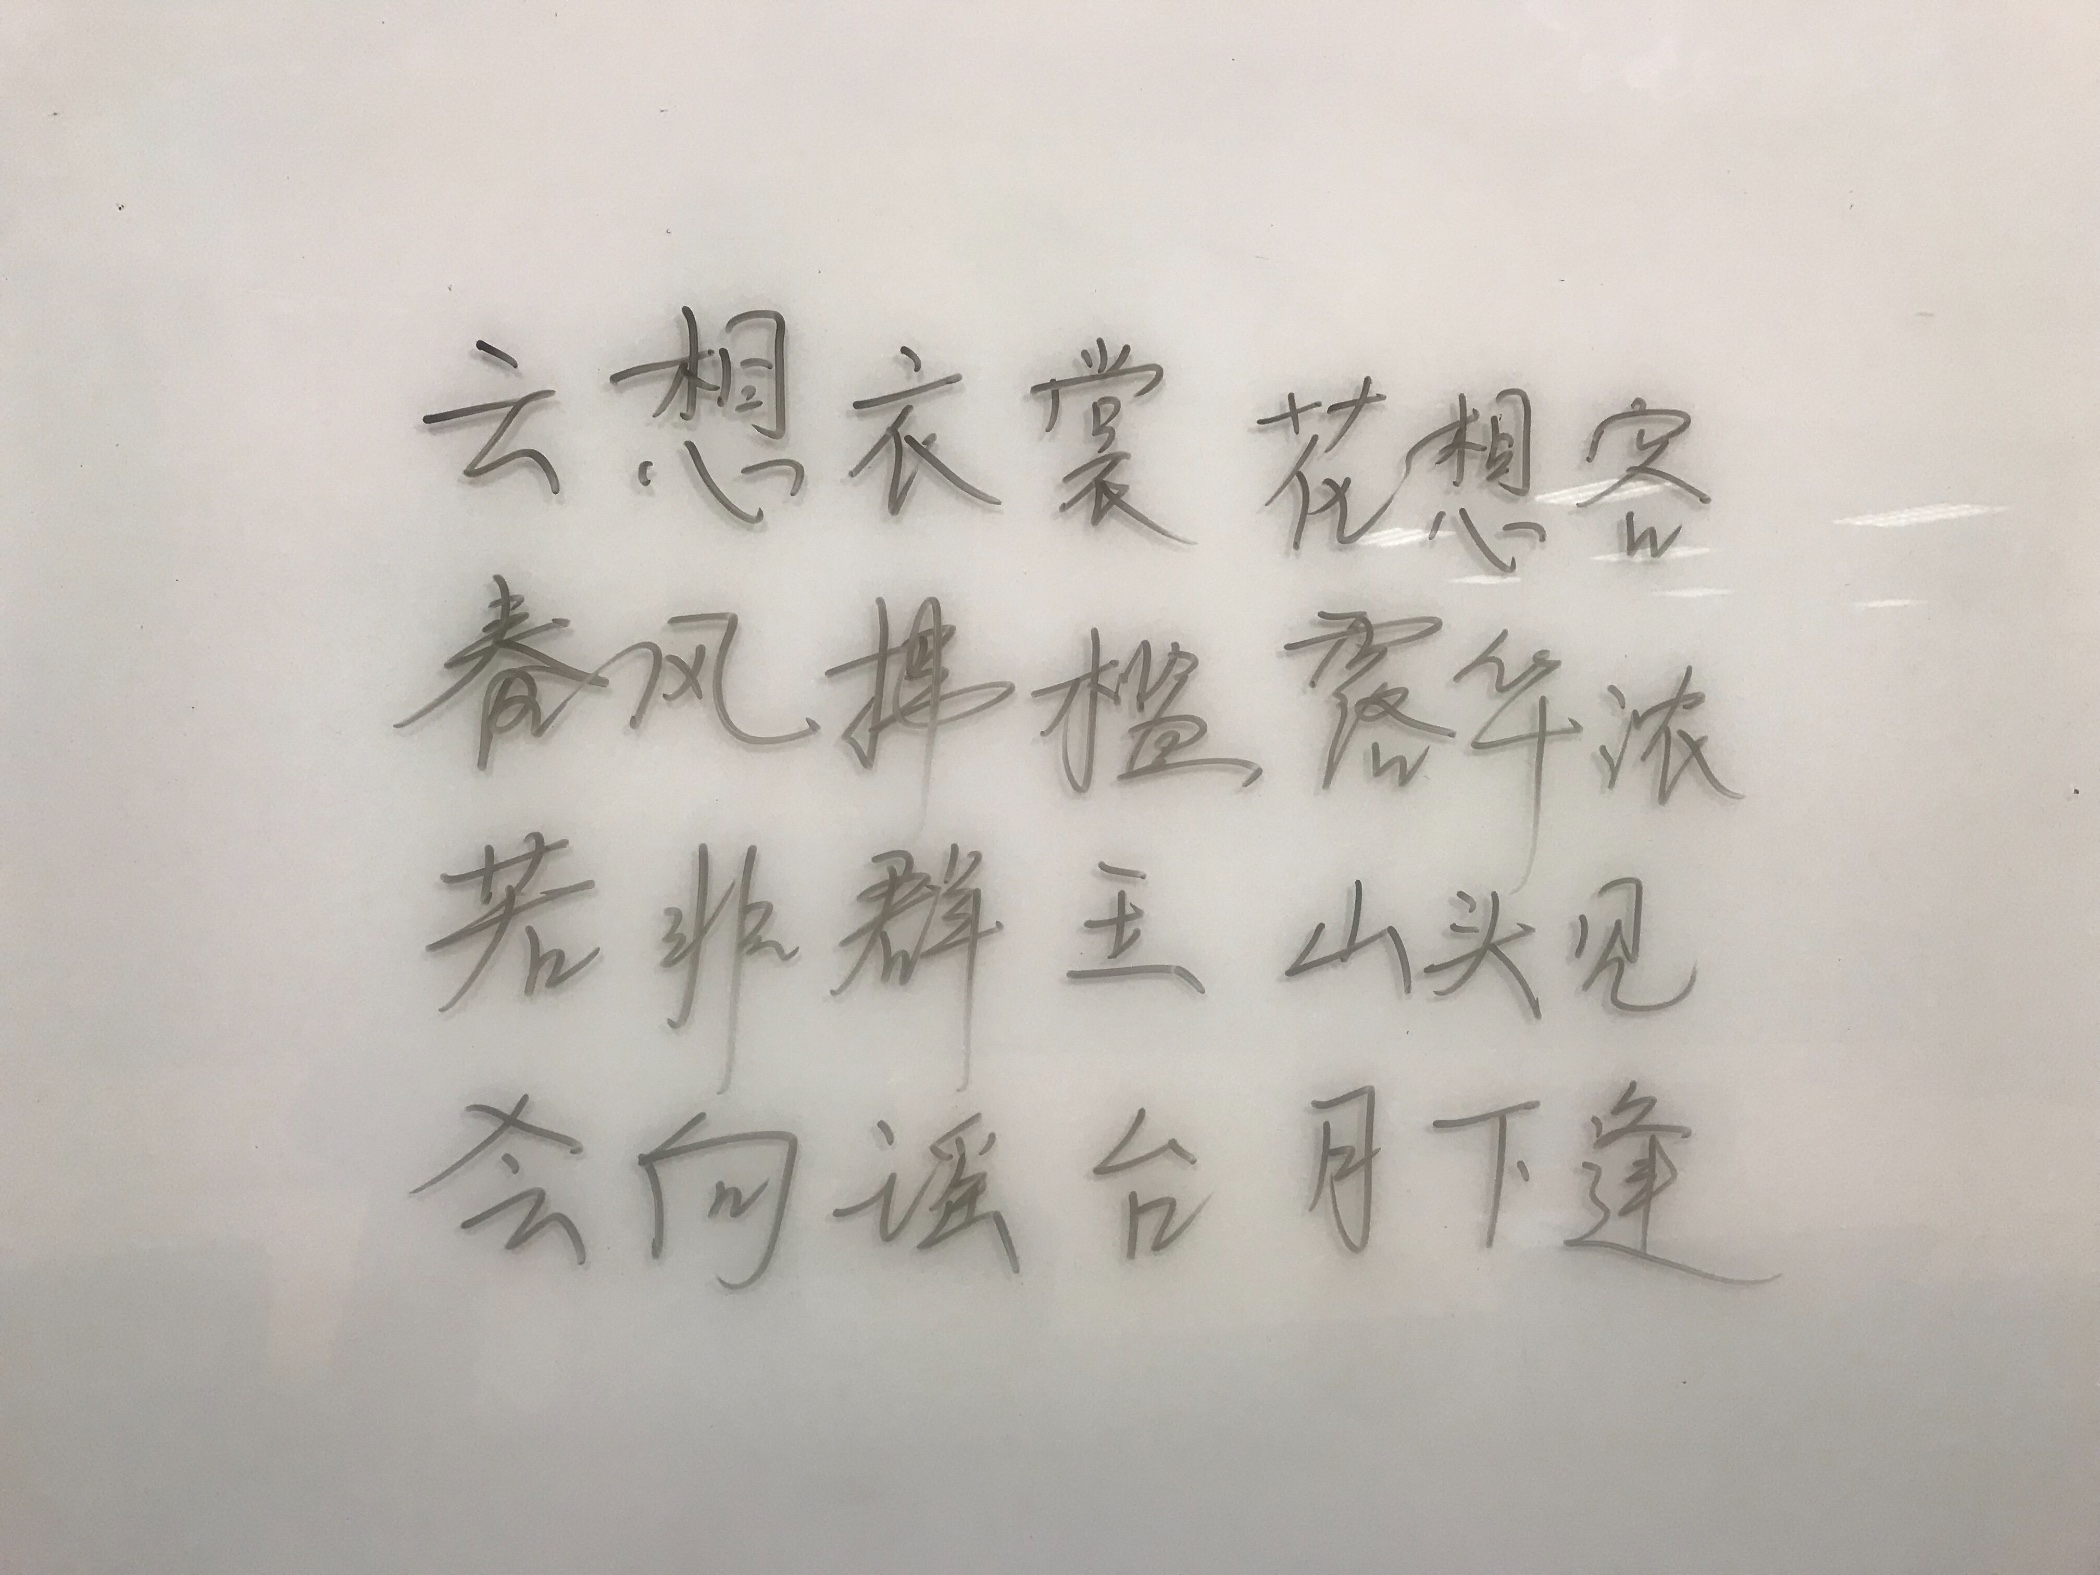 云想衣裳花想容
春风拂槛露华浓
若非群玉山头见
会向谣台月下逢